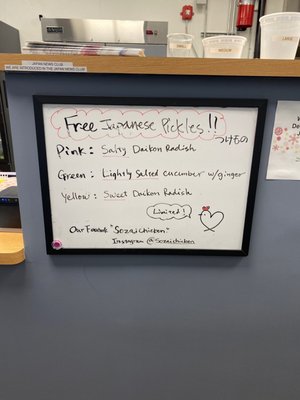 JAPAN NEWS CLUB
WE ARE INTRODUCED IN THE JAPAN NEWS CLUB
SMALL
MEDIUM
LARGE
Free Japanese Pickles!!
つけもの
Pink: Salty Daikon Radish
Green: Lightly Salted cucumber w/ginger
Yellow: Sweet Daikon Radish
Limited!
Our Facebook "Sozai Chicken"
Instagram @Sozaichicken